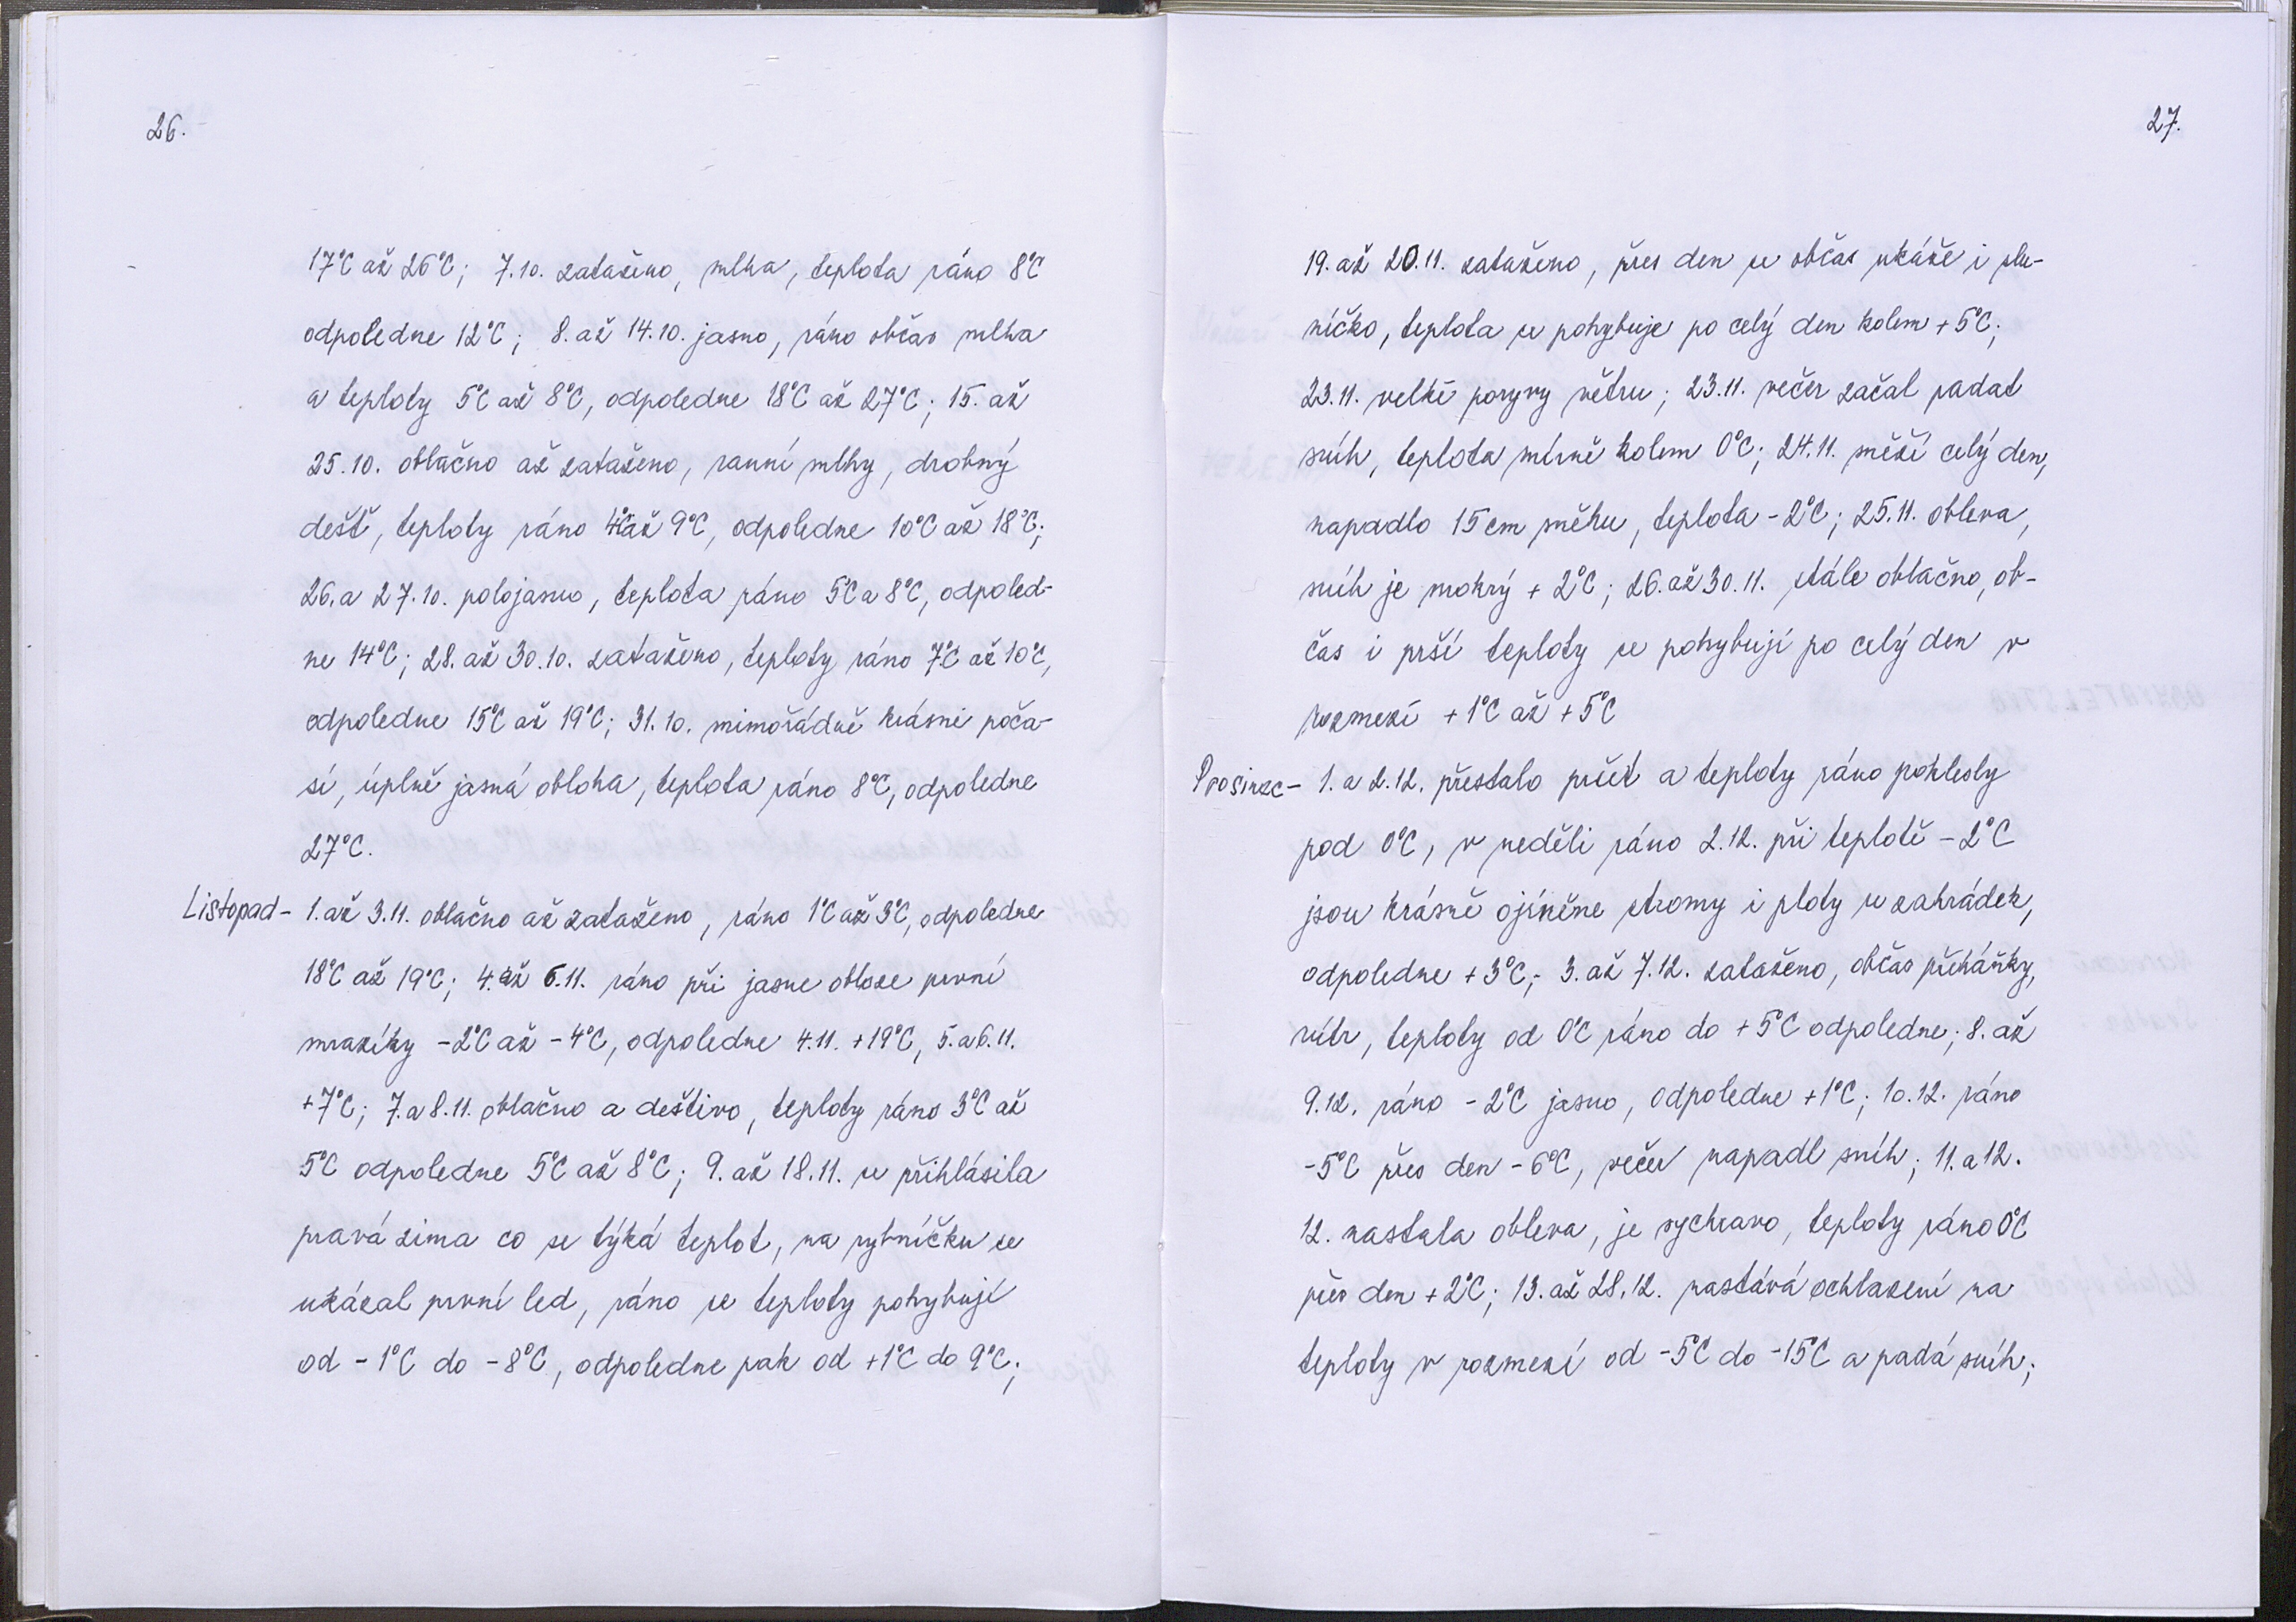 26.
17°C až 26°C; 7.10. zataženo, mlha, teplota ráno 8°C
odpoledne 12°C; 8. až 14.10. jasno, ráno občas mlha
a teploty 5°C až 8°C, odpoledne 18°C až 27°C; 15. až
25.10. oblačno až zataženo, ranní mlhy, drobný
déšť, teploty ráno 4°C až 9°C, odpoledne 10°C až 18°C;
26. a 27.10. polojasno, teplota ráno 5°C a 8°C, odpoled-
ne 14°C; 28. až 30.10. zataženo, teploty ráno 7°C až 10°C,
odpoledne 15°C až 19°C; 31.10. mimořádně krásné poča-
sí, úplně jasná obloha, teplota ráno 8°C, odpoledne
27°C.
Listopad - 1. až 3.11. oblačno až zataženo, ráno 1°C až 3°C, odpoledne
18°C až 19°C; 4. až 6.11. ráno při jasne obloze první
mrazíky -2°C až -4°C, odpoledne 4.11. +19°C, 5. a 6.11.
+7°C; 7. a 8.11. oblačno a deštivo, teploty ráno 3°C až
5°C odpoledne 5°C až 8°C; 9. až 18.11. se přihlásila
pravá zima co se týká teplot, na rybníčku se
ukázal první led, ráno se teploty pohybují
od -1°C do -8°C, odpoledne pak od +1°C do 9°C;
27.
19. až 20.11. zataženo, přes den se občas ukáže i slu-
níčko, teplota se pohybuje po celý den kolem +5°C;
23.11. velké poryvy větru; 23.11. večer začal padat
sníh, teplota mírně kolem 0°C; 24.11. sněží celý den,
napadlo 15 cm sněhu, teplota -2°C; 25.11. obleva,
sníh je mokrý +2°C; 26. až 30.11. stále oblačno, ob-
čas i prší teploty se pohybují po celý den v
rozmezí +1°C až +5°C
Prosinec - 1. a 2.12. přestalo pršet a teploty ráno poklesly
pod 0°C, v neděli ráno 2.12. při teplotě -2°C
jsou krásně ojíněne stromy i ploty u zahrádek,
odpoledne +3°C; 3. až 7.12. zataženo, občas přeháňky,
vítr, teploty od 0°C ráno do +5°C odpoledne; 8. až
9.12. ráno -2°C jasno, odpoledne +1°C; 10.12. ráno
-5°C přes den -6°C, večer napadl sníh; 11. a 12.
12. nastala obleva, je sychravo, teploty ráno 0°C
přes den +2°C; 13. až 28.12. nastává ochlazení na
teploty v rozmezí od -5°C do -15°C a padá sníh;